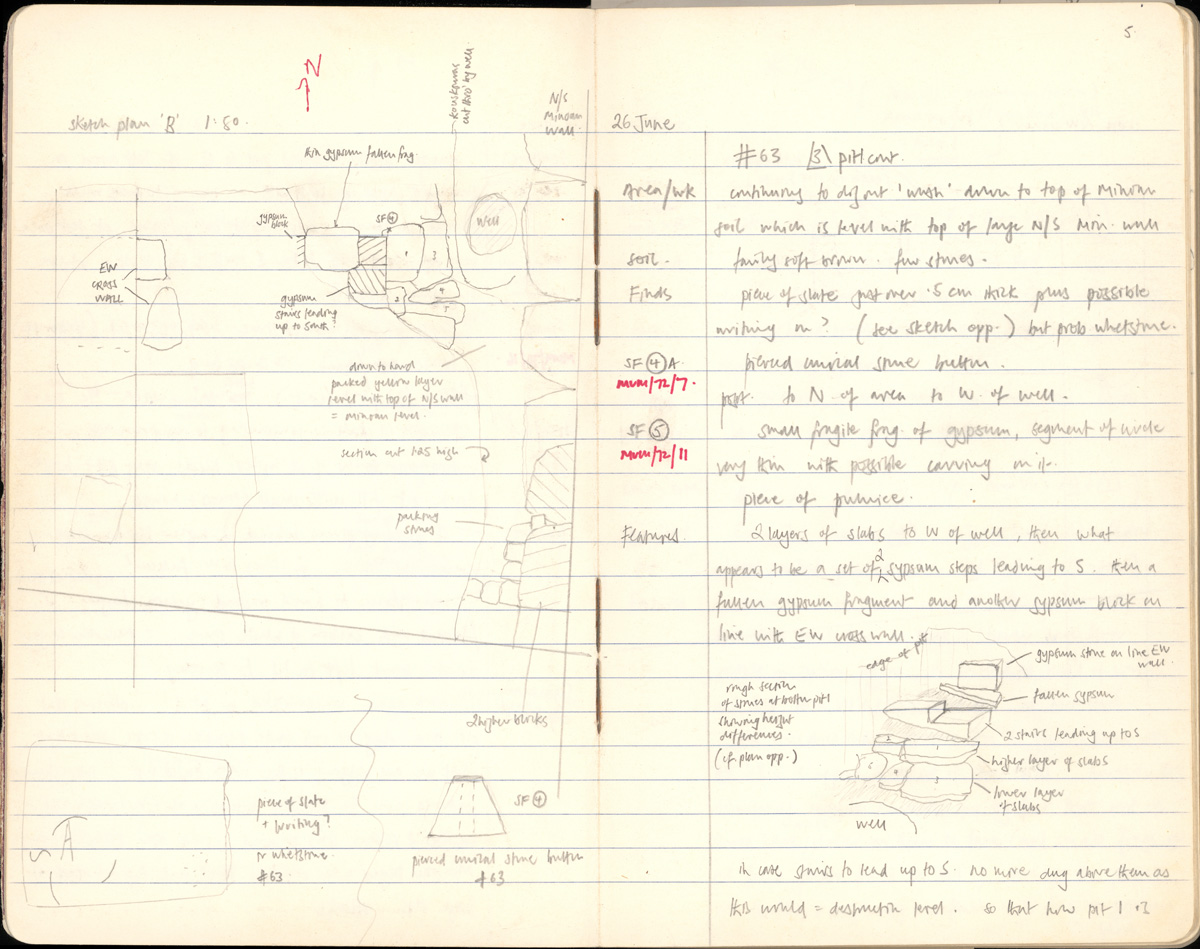 sketch plan 'B' 1:80.
N
thin gypsum fallen frag.
Kouskouras
cut thro' by well
N/S
Minoan
wall
gypsum
block
SF 4
well
EW
CROSS
WALL
1
3
2
4
5
gypsum
stairs leading
up to South?
down to hard
packed yellow layer
level with top of N/S wall
= minoan level.
section cut 1.25 high
packing
stones
2 higher blocks
piece of slate
+ writing?
or whetstone
#63
SF 4
pierced conical stone button
#63
5.
26 June
#63 3 pit 1 cont.
Area/wk continuing to dig out 'wash' down to top of Minoan
soil which is level with top of large N/S Min. wall
Soil. fairly soft brown. few stones.
Finds piece of slate just over .5 cm thick plus possible
writing on? (see sketch opp.) but prob whetstone.
SF 4 A pierced conical stone button.
MUM/72/7.
to N. of area to W. of well.
SF 5 small fragile frag. of gypsum, segment of circle
MUM/72/11
very thin with possible carving on it.
piece of pumice.
Features. 2 layers of slabs to W of well, then what
appears to be a set of 2 gypsum steps leading to S. then a
fallen gypsum fragment and another gypsum block on
line with EW cross wall.
edge of pit
gypsum stone on line EW
wall
rough section
of stones at bottom pit 1
showing height
differences.
(cf. plan opp.)
fallen gypsum
2 stairs leading up to S
higher layer of slabs
lower layer
of slabs
2
1
5
4
3
well
in case stairs to lead up to S. no more dug above them as
this would = destruction level. so that now pit 1 .3